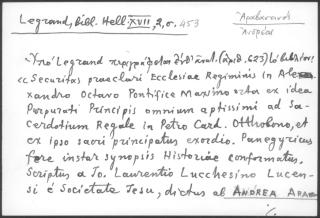 Legrand, bibl. Hell. XVIII, 2, σ. 453
Ἀραβανινός
Ἀνδρέας
Ὑπὸ Legrand περιγράφεται (ἀριθ. 623) τὸ βιβλίον:
« Securitas praeclari Ecclesiae Regiminis in Ale-
xandro Octavo Pontifice Maximo orta ex idea
Purpurati Principis omnium aptissimi ad Sa-
cerdotium Regale in Petro Card. Otthobono, et
ex ipso sacri principatus exordio. Panegyricus
fere instar synopsis Historiae conformatus.
Scriptus a Jo. Laurentio Lucchesino Lucen-
si è Societate Jesu, dictus ab ANDREA ARA=